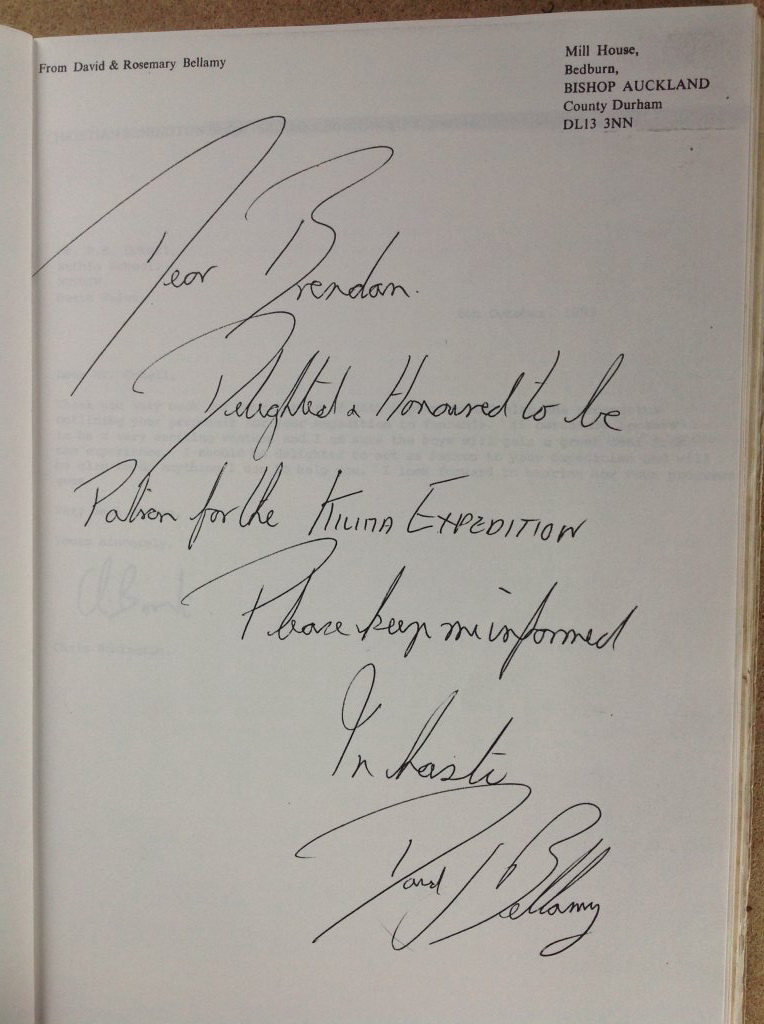 From David & Rosemary Bellamy
Mill House,
Bedburn,
BISHOP AUCKLAND
County Durham
DL13 3NN
Dear Brendan.
Delighted & Honoured to be
Patron for the KILIMA EXPEDITION
Please keep me informed
In haste
David J Bellamy